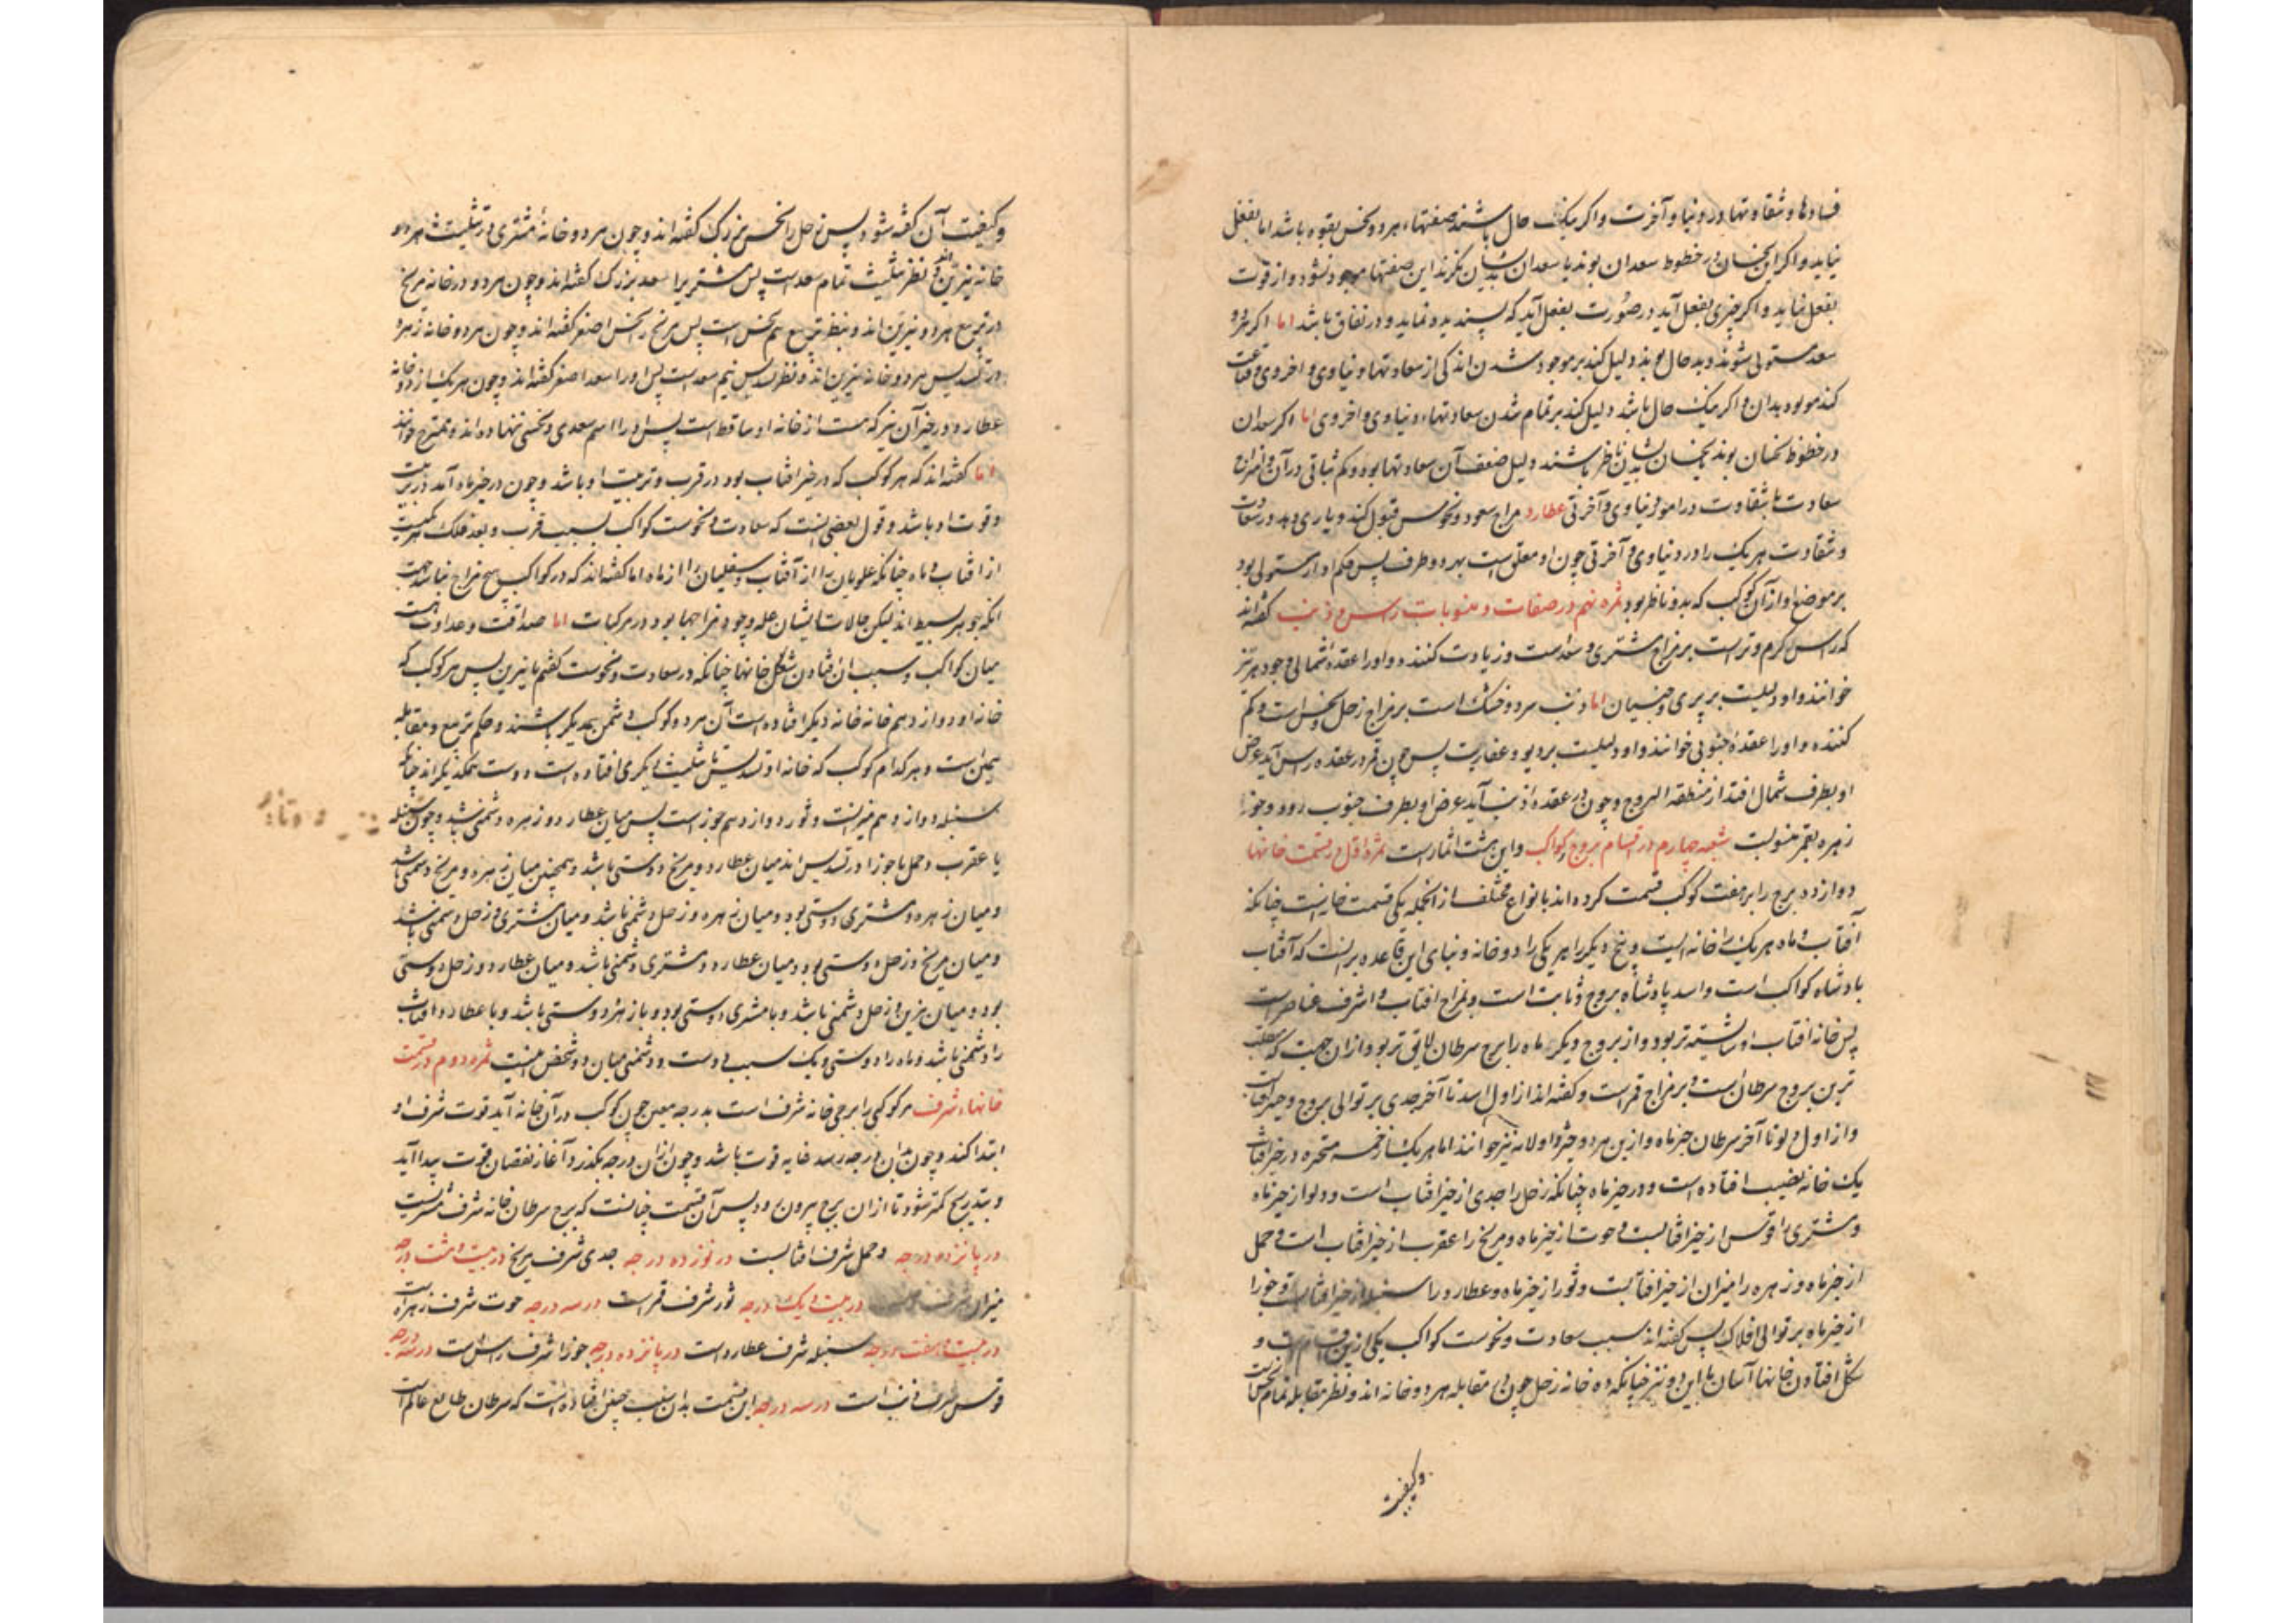 فسادها و شقاوتها در دنیا و آخرت و اکر نیک حال باشند صفتهاء هر دو نحس بقوه باشد اما بفعل
نیاید و اکر این نحسان در خطوط سعدان بوند یا سعدان بدیشان نکرند این صفتها موجود نشود و از قوت
بفعل نیاید و اکر چیزی بفعل آید در صورت بفعل آید که پسندیده نماید و در نفاق باشد اما اکر هر دو
سعد مستولی شوند و بد حال بوند دلیل کند بر موجود شدن اندکی از سعادتها دنیاوی و اخروی و قناعت
کند مولود بدان و اکر نیک حال باشد دلیل کند بر تمام شدن سعادتهاء دنیاوی و اخروی اما اکر سعدان
در خطوط نحسان بوند یا نحسان بدیشان ناظر باشند دلیل ضعف آن سعادتها بود و کم ثباتی در آن و
سعادت با شقاوت در امور دنیاوی و آخرتی عطارد مزاج سعود و نحوس قبول کند و یاری دهد در سعادت
و شقاوت هر یک را در دنیاوی و آخرتی چون او معلق است بهر دو طرف پس حکم او از مستولی بود
بر موضع او از آن کوکب که بدو ناظر بود ثمره نهم در صفات و منسوبات راس و ذنب کفته‌اند
که راس کرم و تر است بر مزاج مشتری و سعد است و زیادت کننده و او را عقدهٔ شمالی و جوزهر نیز
خوانند و او دلیلست بر پری و جنیان اما ذنب سرد و خشک است بر مزاج زحل و نحس است و کم
کننده و او را عقدهٔ جنوبی خوانند و او دلیلست بر دیو و عفاریت پس چون قمر در عقده راس آید عرض
او بطرف شمال افتد از منطقه البروج و چون در عقده ذنب آید عرض او بطرف جنوب رود و جوز
زهره بقمر منسوبست شعبه چهارم در اقسام بروج و کواکب و این هشت اثمار است ثمره اول در قسمت خانها
دوازده برج را بر هفت کوکب قسمت کرده‌اند بانواع مختلف از انجمله یکی قسمت خانهاست چنانکه
آفتاب و ماه هر یک را خانه ایست و پنج دیکر را هر یکی را دو خانه و بنای این قاعده بر انست که آفتاب
پادشاه کواکب است و اسد پادشاه بروج و ثابت است و بمزاج افتاب و اشرف عناصر است
پس خانه افتاب او شایسته تر بود و از بروج دیکر ماه را برج سرطان لایق تر بود از ان جهت که منقلب
ترین بروج سرطان است و بر مزاج قمر است و کفته‌اند از اول اسد تا آخر جدی بر توالی بروج حیز افتابست
و از اول دلو تا آخر سرطان حیز ماه و ازین هر دو حیز را ولایه نیز خوانند اما هر یک از خمسه متحیره در حیز افتاب
یک خانه نصیب افتاده است و در حیز ماه چنانکه زحل را جدی از حیز افتاب است و دلو از حیز ماه
و مشتری را قوس از حیز افتابست و حوت از حیز ماه و مریخ را عقرب از حیز افتاب است و حمل
از حیز ماه و زهره را میزان از حیز افتابست و ثور از حیز ماه و عطارد را سنبله از حیز افتابست و جوزا
از حیز ماه بر توالی افلاک پس کفته‌اند سبب سعادت و نحوست کواکب یکی ازین اقسام است و
شکل افتادن خانها آسان با این دو نیز چنانکه ده خانه زحل چون در مقابله هر دو خانه اند و نظر مقابله تمام نحس است
وکیفیت
و کیفیت آن کفته شود پس زحل را نحس بزرک کفته‌اند و چون هر دو خانهٔ مشتری در تثلیث هر دو
خانه نیرین اند و نظر تثلیث تمام سعد است پس مشتری را سعد بزرک کفته‌اند و چون هر دو خانه مریخ
در تربیع هر دو نیرین اند و نظر تربیع هم نحس است پس مریخ را نحس اصغر کفته‌اند و چون هر دو خانه زهره
در تسدیس هر دو خانه نیرین اند و نظر تسدیس نیم سعد است پس او را سعد اصغر کفته‌اند و چون هر یک از دو خانه
عطارد در حیز آن نیر که هست از خانه او ساقط است پس او را اسم سعدی و نحسی ننهاده‌اند و ممتزج خوانند
اما کفته‌اند که هر کوکب که در حیز افتاب بود در قرب و تربیت او باشد و چون در حیز ماه آید در تربیت
و قوت او باشد و قول بعضی انست که سعادت و نحوست کواکب بسبب قرب و بعد فلک هر یکیست
از افتاب و ماه چنانکه علویان را از آفتاب و سفلیان را از ماه اما کفته‌اند که در کواکب هیچ مزاج نباشد جهت
انکه جوهر بسیط اند لیکن حالات ایشان علة وجود مزاجها بود در مرکبات اما صداقت و عداوت
میان کواکب بسبب افتادن شکل خانها چنانکه در سعادت و نحوست کفتیم با نیرین پس هر کوکب که
خانه او دوازدهم خانه دیکر افتاده است آن هر دو کوکب دشمن یکدیکر باشند و حکم تربیع و مقابله
همین است و هر کدام کوکب که خانه او تسدیس یا تثلیث دیکری افتاده است دوست یکدیکر اند چنانکه
سنبله دوازدهم میزانست و ثور دوازدهم جوزاست پس میان عطارد و زهره دشمنی باشد و چون سنبله
با عقرب و حمل با جوزا در تسدیس اند میان عطارد و مریخ دوستی باشد و همچنین میان زهره و مریخ دشمنی باشد
و میان زهره و مشتری دوستی بود و میان زهره و زحل دشمنی باشد و میان مشتری و زحل دشمنی باشد
و میان مریخ و زحل دوستی بود و میان عطارد و مشتری دشمنی باشد و میان عطارد و زحل دوستی
بود و میان نیرین و زحل دشمنی باشد و با مشتری دوستی بود و با زهره دوستی باشد و با عطارد افتاب
را دشمنی باشد و ماه را دوستی و یک سبب دوستی و دشمنی میان دو شخص اینست ثمره دوم در قسمت
خانهاء شرف هر کوکبی را برجی خانه شرف است بدرجه معین چون کوکب در آن خانه آید قوت شرف او
ابتدا کند و چون بدان درجه رسد غایه قوت باشد و چون از ان درجه بکذرد آغاز نقصان قوت پیدا آید
و بتدریج کمتر شود تا از ان برج بیرون رود پس آن قسمت چنانست که برج سرطان خانه شرف مشتریست
در پانزده درجه و حمل شرف افتابست در نوزده درجه جدی شرف مریخ در بیست و هشت درجه
میزان شرف در بیست و یک درجه ثور شرف قمر است در سه درجه حوت شرف زهره است
در بیست و هفت درجه سنبله شرف عطارد است در پانزده درجه جوزا شرف راس است در سه درجه
قوس شرف ذنب است در سه درجه این قسمت بدان سبب چنین افتاده است که سرطان طالع عالم است